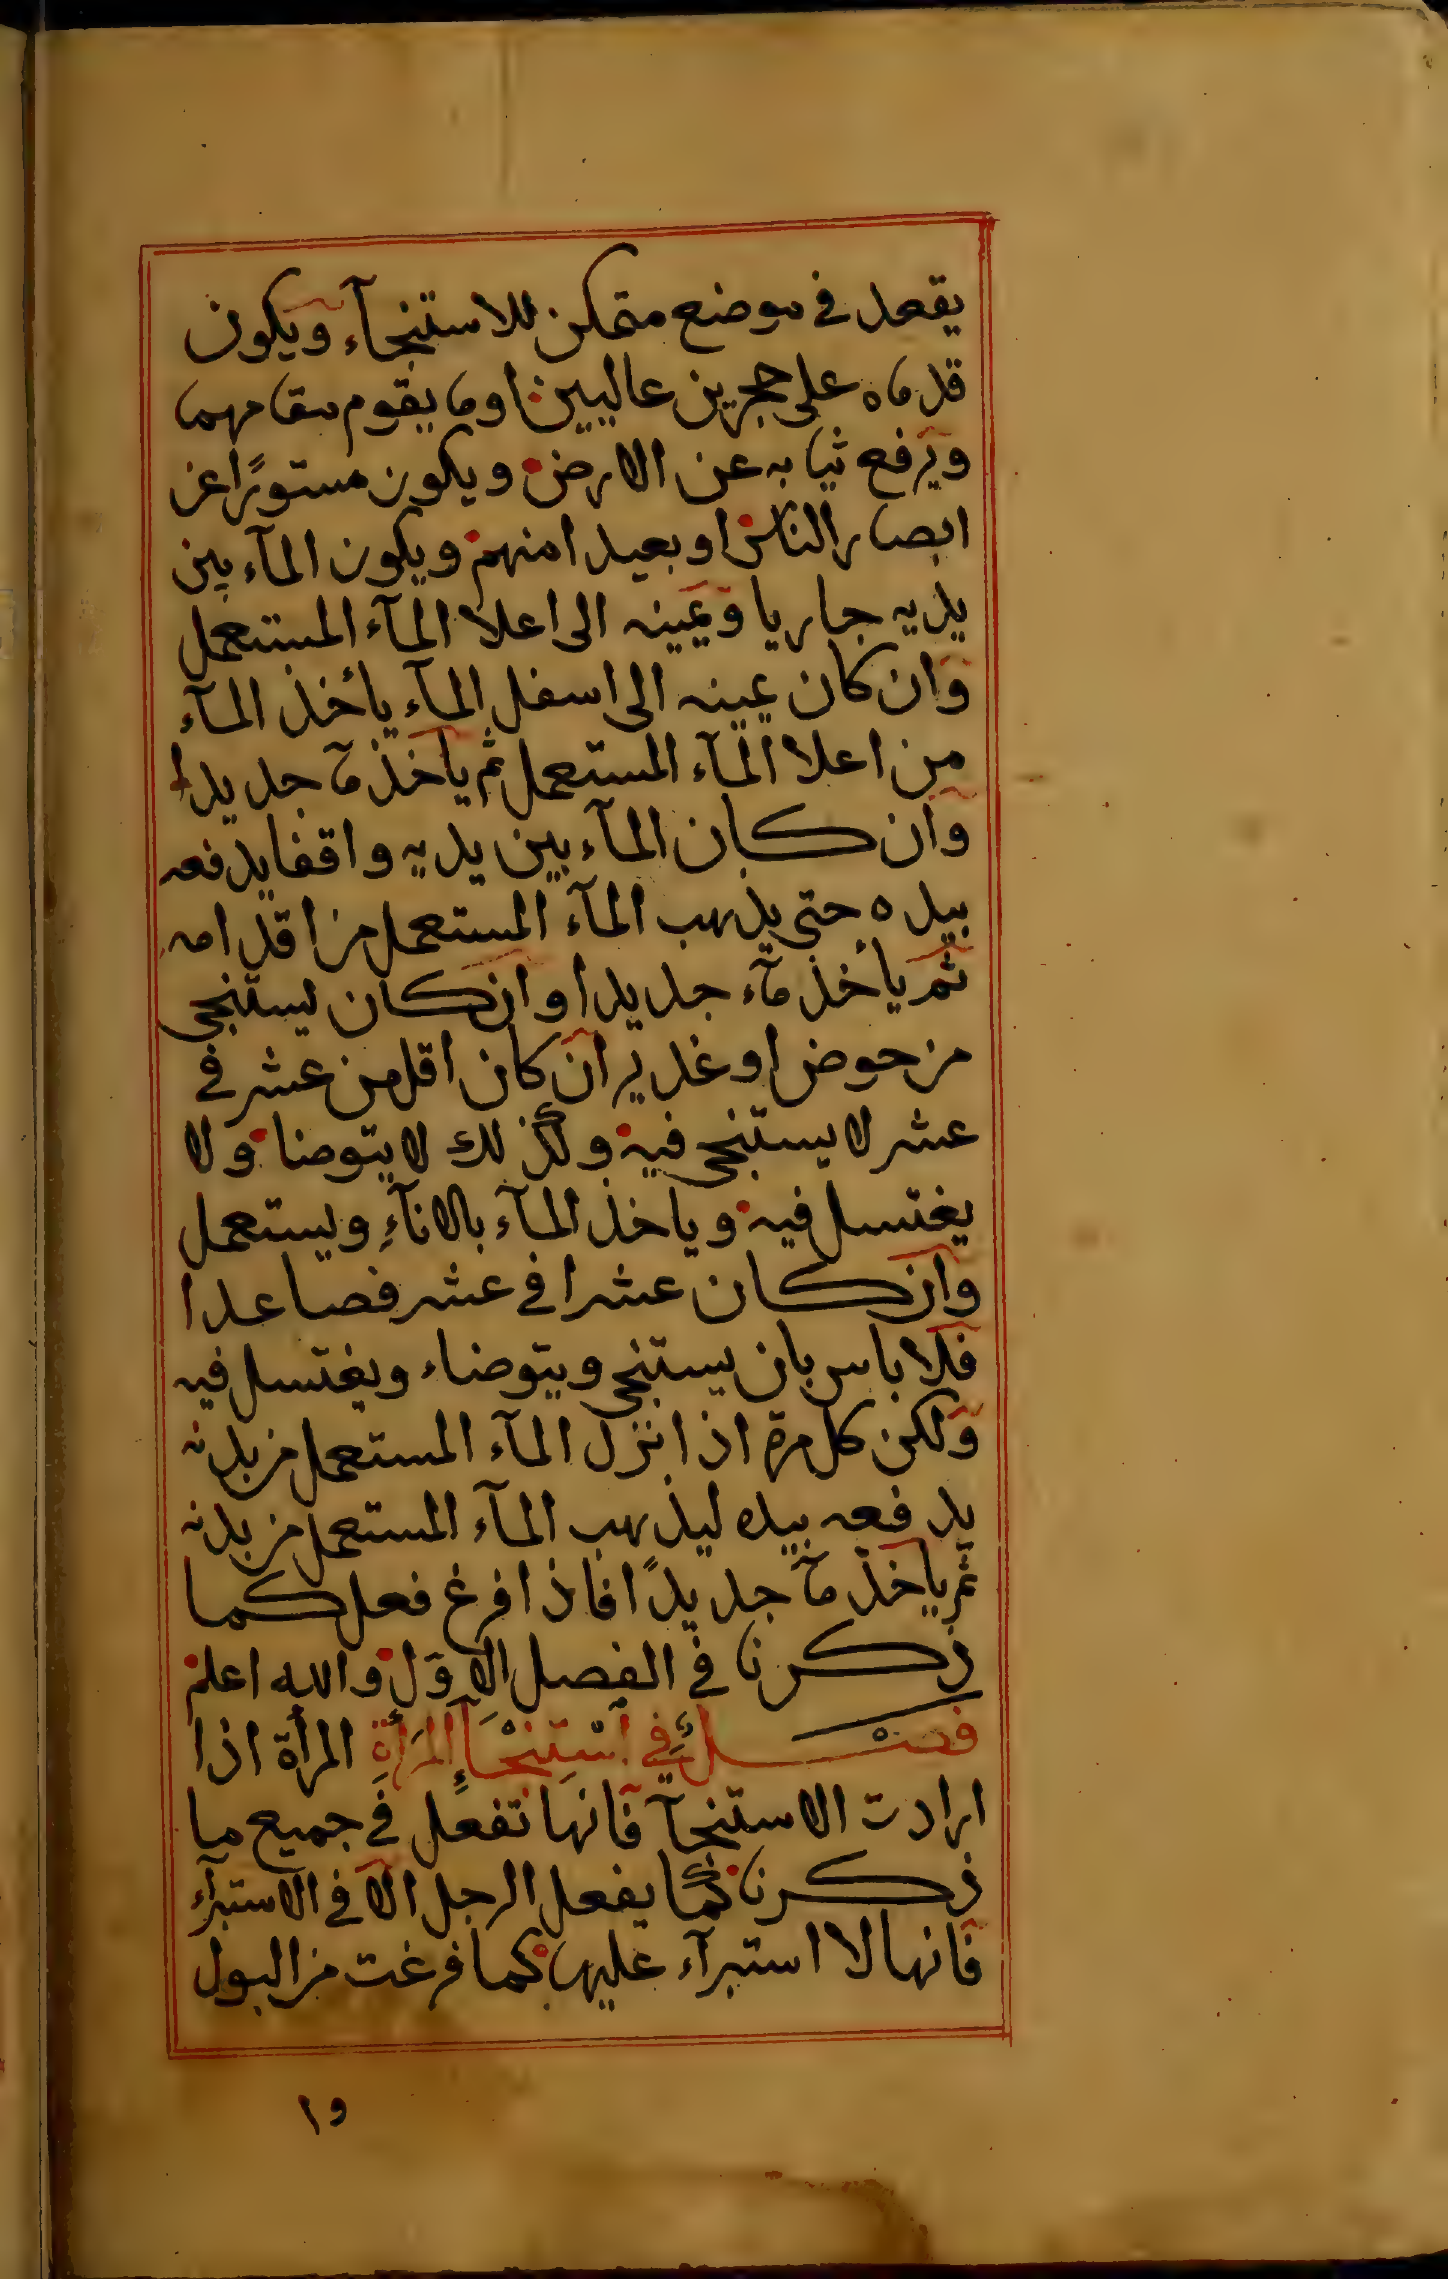 يقعد في موضع متمكن للاستنجآء ويكون
قدماه على حجرين عاليين او ما يقوم مقامهما
ويرفع ثيابه عن الارض ويكون مستورًا عن
ابصار الناس او بعيدا منهم ويكون المآء بين
يديه جاريا ويمينه الى اعلا المآء المستعمل
وان كان يمينه الى اسفل المآء يأخذ المآء
من اعلا المآء المستعمل ثم ياخذ مآ جديدا
وان كان المآء بين يديه واقفا يدفعه
بيده حتى يذهب المآء المستعمل من اقدامه
ثم يأخذ مآء جديدا وان كان يستنجى
من حوض او غدير ان كان اقل من عشر في
عشر لا يستنجى فيه وكذلك لا يتوضا ولا
يغتسل فيه وياخذ المآء بالانآءِ ويستعمل
وان كان عشرا في عشر فصاعدا
فلا باس بان يستنجى ويتوضاء ويغتسل فيه
ولكن كل مرة اذا نزل المآء المستعمل من بدنه
يدفعه بيده ليذهب المآء المستعمل من بدنه
ثم ياخذ مآ جديدًا فاذا فرغ فعل كما
ذكرنا في الفصل الاول والله اعلم
فصلٌ في اسْتِنْجَآءِ المَرأةِ المرأة اذا
ارادت الاستنجآ فانها تفعل في جميع ما
ذكرنا كما يفعل الرجل الا في الاستبرآء
فانها لا استبرآء عليها كما فرغت من البول
١٩